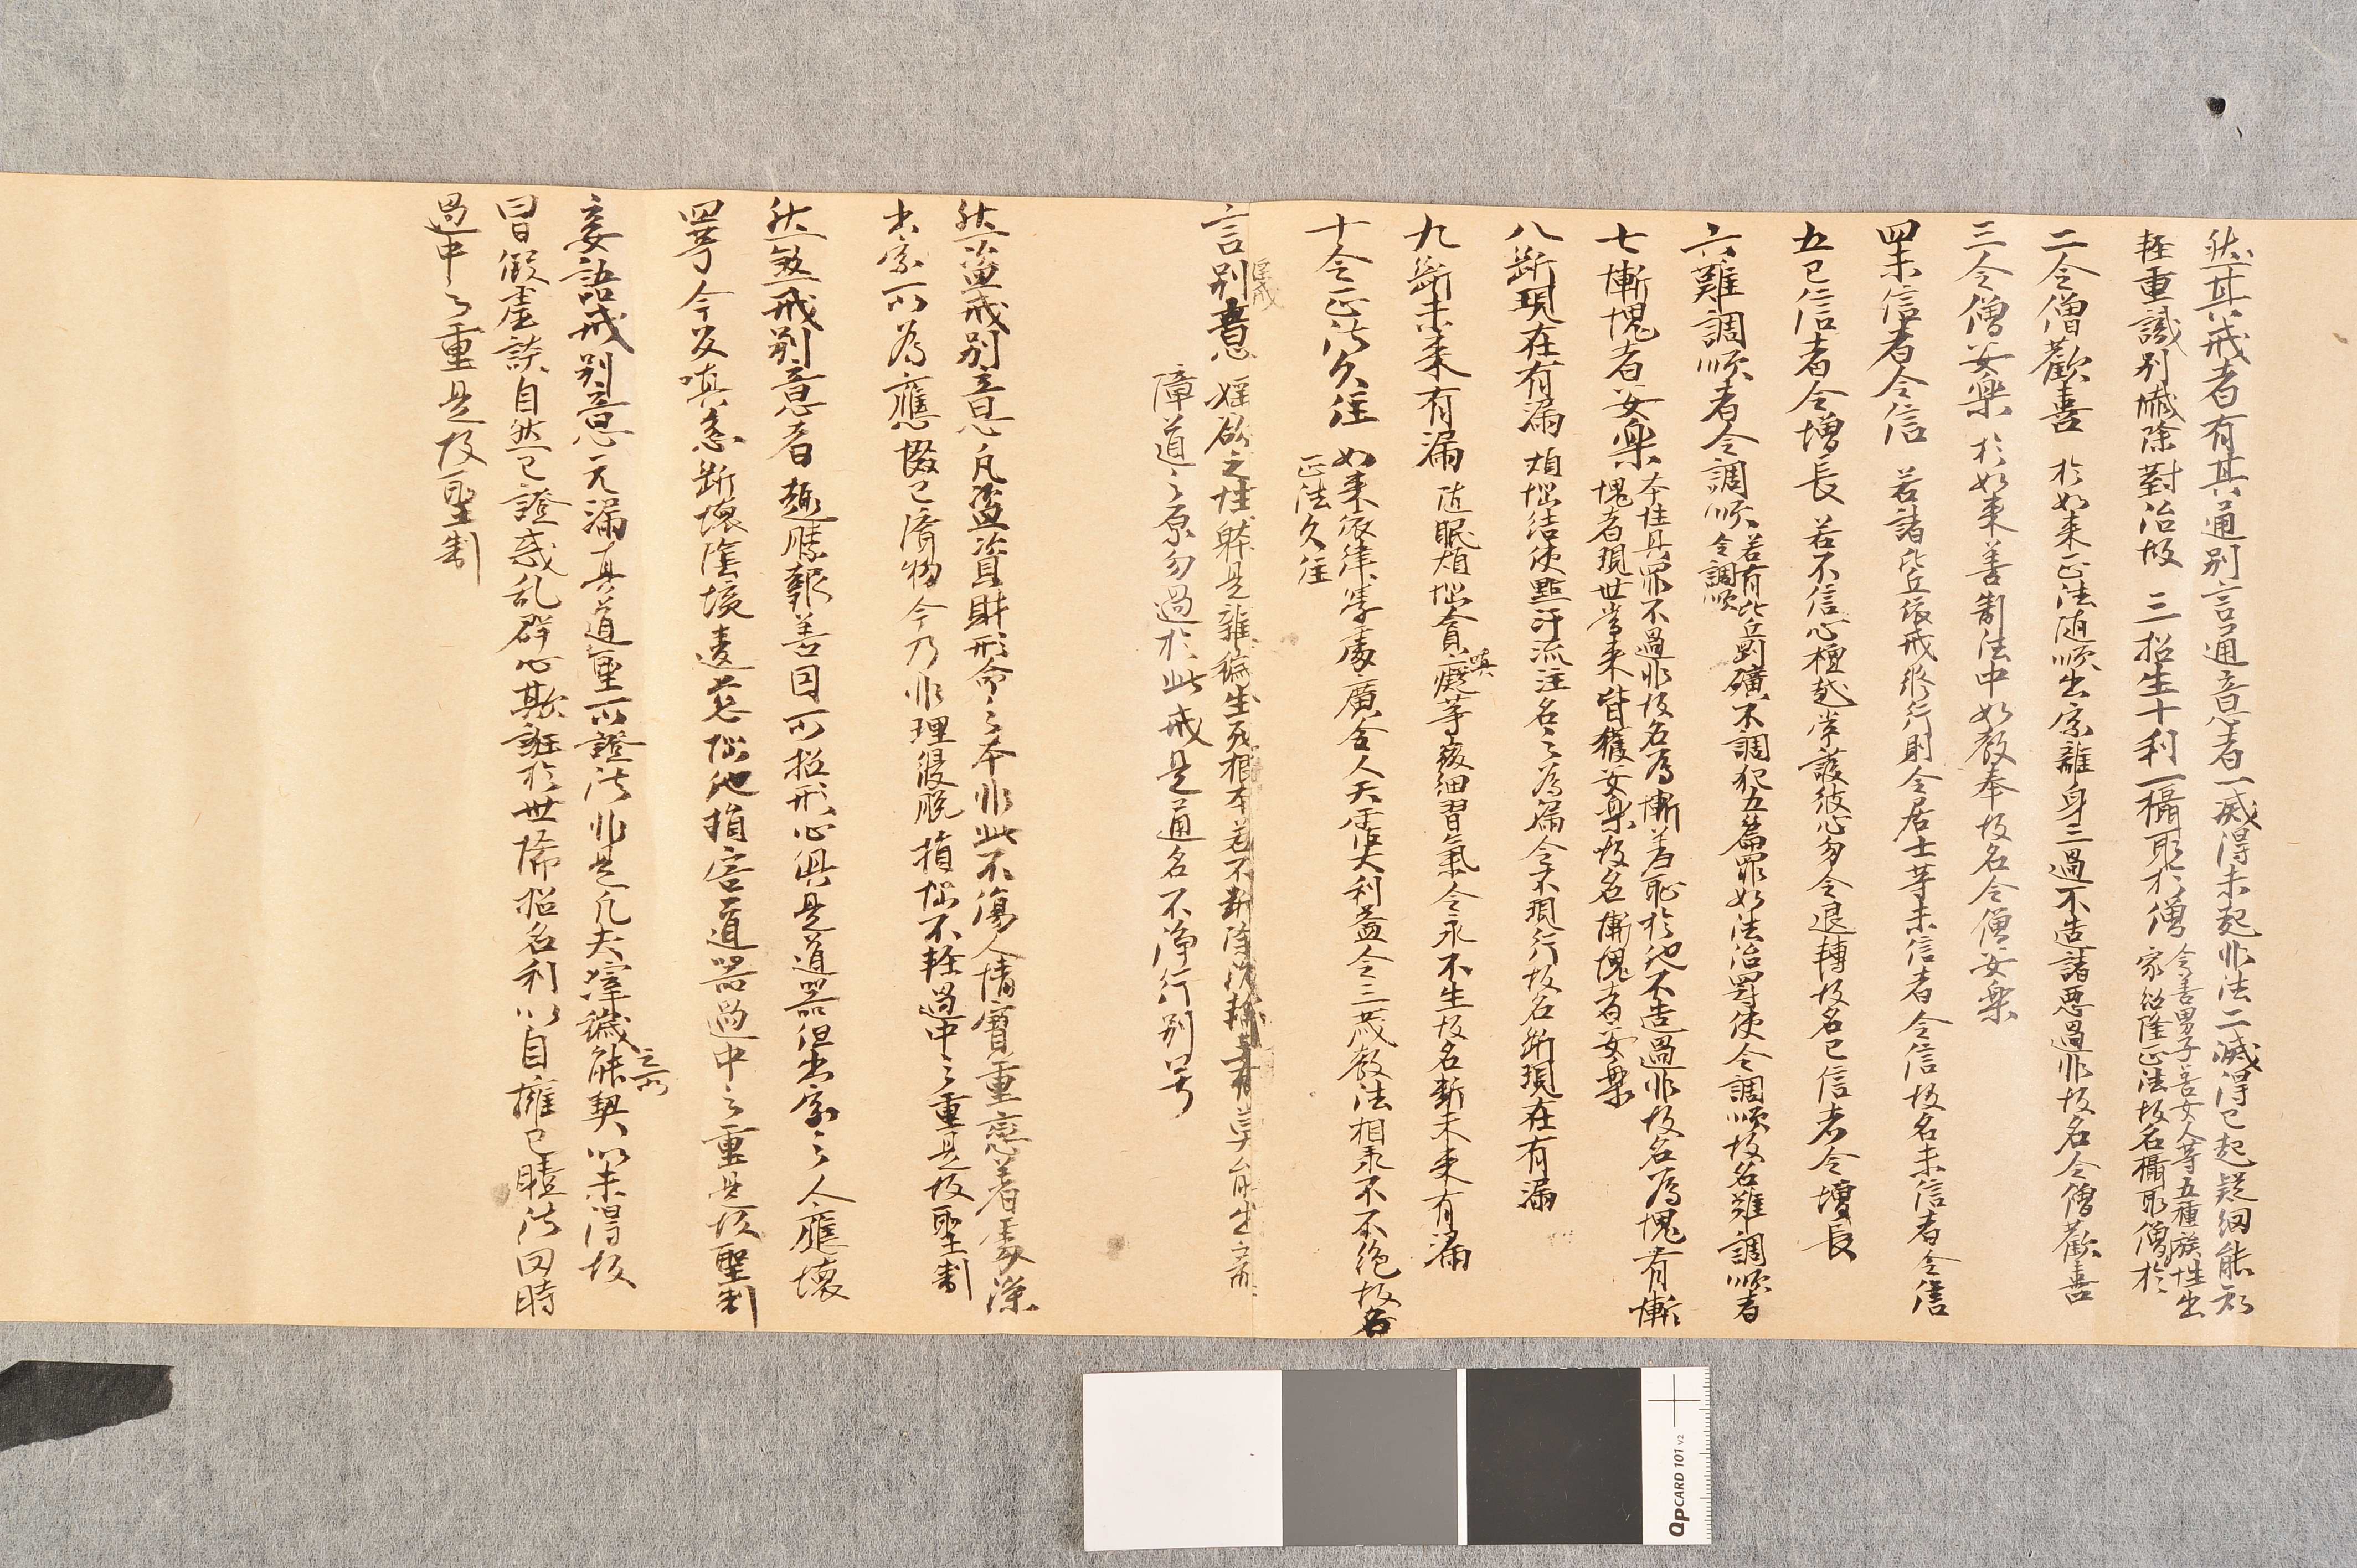 然其戒者有其通別言通意者一滅得未起非法二滅得已起疑網能知
輕重識別懺除對治故　三招生十利一攝取於僧　令善男子善女人等五種族姓出
家紹隆正法故名攝取僧於
二令僧歡喜　於如來正法随順出家離身三過不造諸惡過非故名令僧歡喜
三令僧安樂　於如來善制法中如教奉故名令僧安樂
四未信者令信　若諸比丘依戒修行則令居士等未信者令信故名未信者令信
五已信者令增長　若不信心檀越常護彼心勿令退轉故名已信者令增長
六難調順者令調順　若有比丘剛獷不調犯五篇罪如法治罸使令調順故名難調順者
令調順
七慚愧者安樂　本性具罪不過非故名為慚羞恥於他不造過非故名為愧有慚
愧者現世當来皆獲安樂故名慚愧者安樂
八斷現在有漏　煩惱結使點汙流注名之為漏令不現行故名斷現在有漏
九斷未来有漏　随眠煩惱貪瞋癡等微細習氣令永不生故名斷未来有漏
十令正法久住　如来依律學處廣令人天作大利益令三藏教法相承不不絶故名
正法久住
言別意　婬欲之性躰是雜穢生死根本若不斷除沈莫能出
障道之原勿過於此戒是通名不淨行別号
然盜戒別意　凡盜資財形命之本非此不傷人情實重戀著處深
出家所為應惙已濟物今乃非理侵脫損惱不輕過中之重是故聖制
然煞戒別意者　趣勝報善因所招形心俱是道器但出家之人應懷
四等今反嗔恚斷壞陰境違慈惱他損害道器過中之重是故聖制
妄語戒別意　无漏真道聖所證法非是凡夫滓穢之所能契以未得故
曰假虛談自然已證惑乱群心欺誑於世悕招名利以自擁已賍法因時
過中之重是故聖制